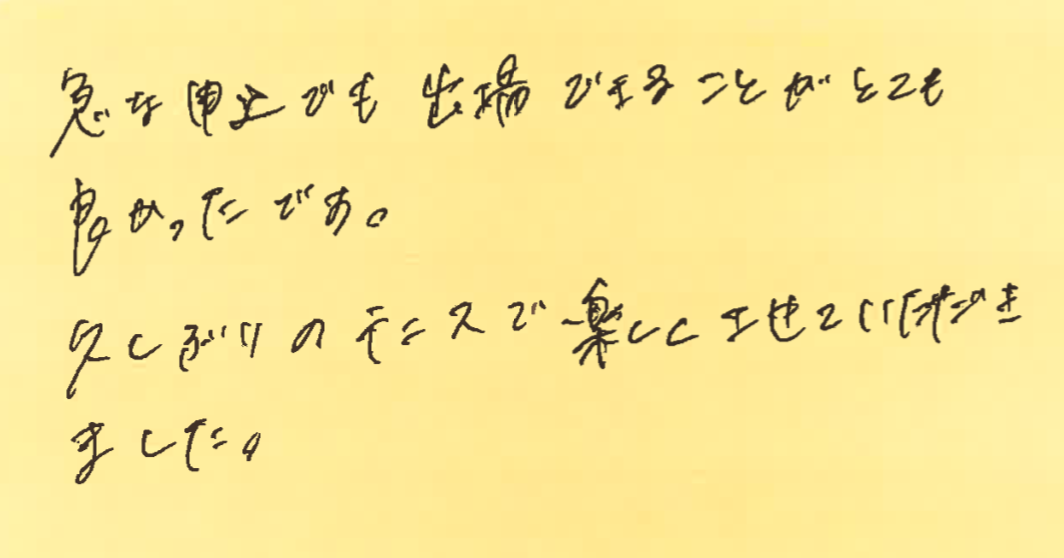 急な申込でも出場できることがとても
良かったです。
久しぶりのテニスで楽しくさせていただき
ました。